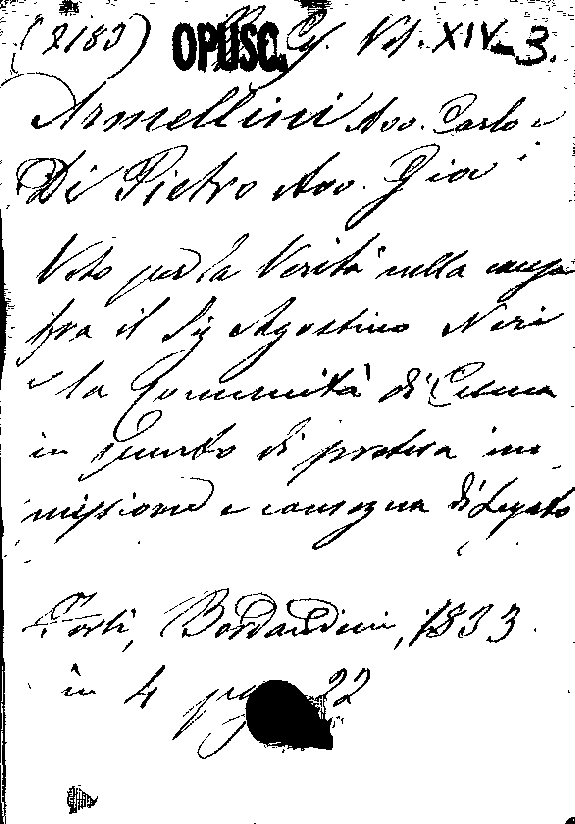 (2183) OPUSC. Vol. XIV-3.
Armellini Avv. Carlo e
Di Pietro Avv. Gio
Voto per la Verità nella causa
fra il Sig Agostino Neri
e la Comunità di Cesena
in punto di pretesa im
missione e consegna di Legato
Forlì, Bordandini, 1833.
in 4 pag 22